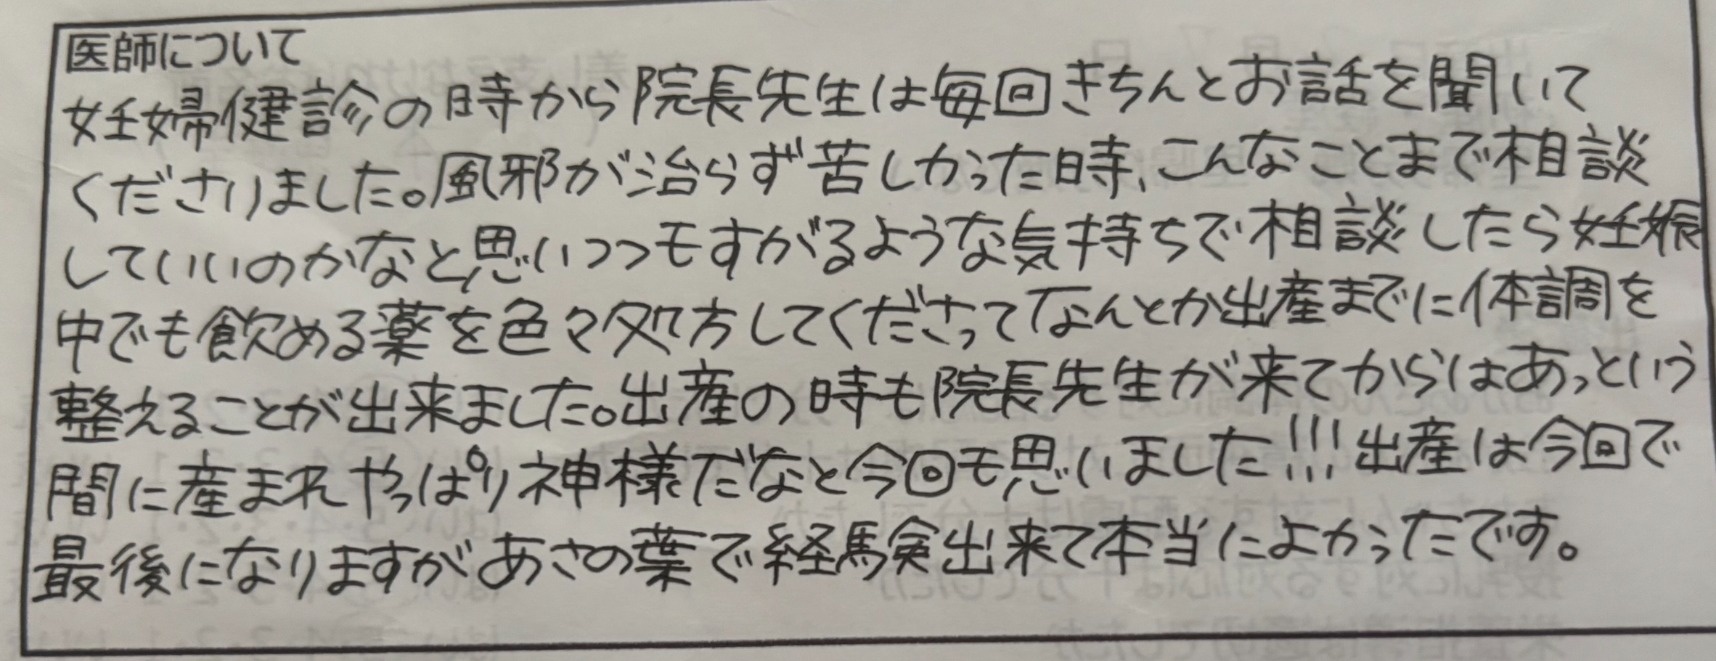 医師について
妊婦健診の時から院長先生は毎回きちんとお話を聞いて
くださりました。風邪が治らず苦しかった時、こんなことまで相談
していいのかなと思いつつもすがるような気持ちで相談したら妊娠
中でも飲める薬を色々処方してくださってなんとか出産までに体調を
整えることが出来ました。出産の時も院長先生が来てからはあっという
間に産まれやっぱり神様だなと今回も思いました!!!出産は今回で
最後になりますがあさの葉で経験出来て本当によかったです。